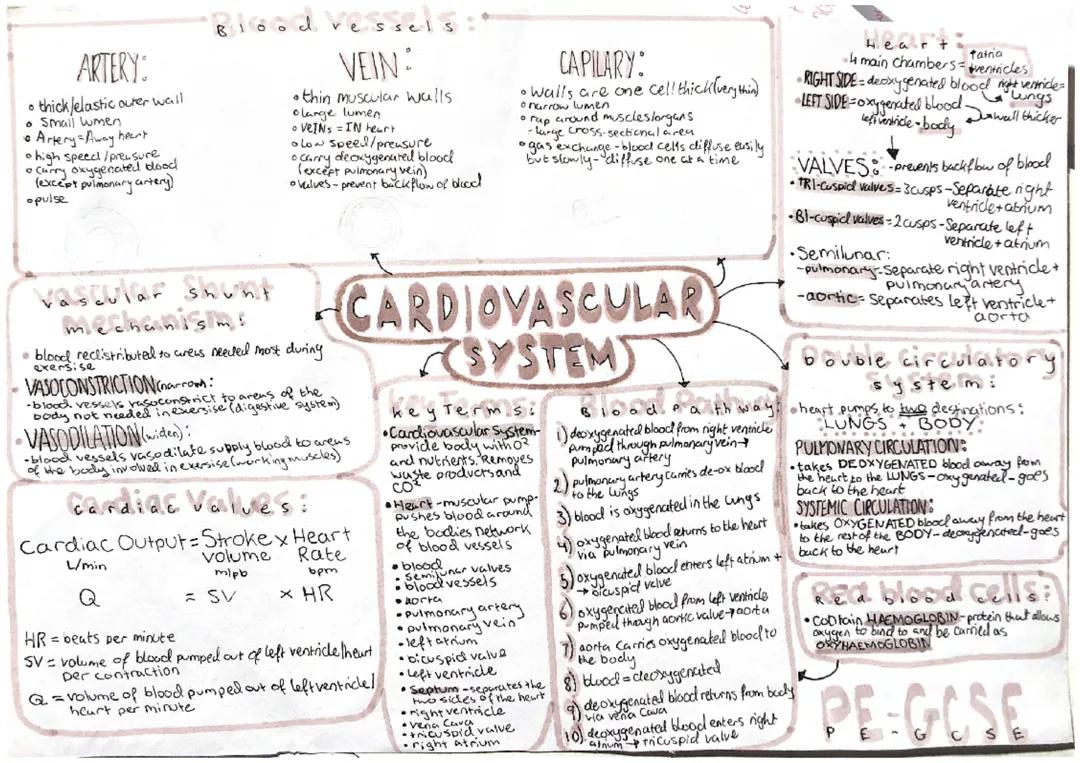 Blood vessels:
ARTERY:
o thick/elastic outer wall
o Small lumen
o Artery = Away heart
o high speed/preasure
o carry oxygenated blood
(except pulmonary artery)
o pulse
VEIN:
o thin muscular walls
o large lumen
o VEINs = IN heart
o low speed/preasure
o carry deoxygenated blood
(except pulmonary vein)
o valves - prevent backflow of blood
CAPILARY:
o walls are one cell thick (very thin)
o narrow lumen
o rap around muscles/organs
- large cross-sectional area
o gas exchange - blood cells diffuse easily
but slowly - diffuse one at a time
Heart:
4 main chambers = ↑atria
↓ventricles
RIGHT SIDE = deoxygenated blood right ventricle =
lungs
LEFT SIDE = oxygenated blood
left ventricle = body
wall thicker
VALVES: - prevents backflow of blood
• TRI-cuspid valves = 3 cusps - Separate right
ventricle + atrium
• BI-cuspid valves = 2 cusps - Separate left
ventricle + atrium
• Semilunar:
- pulmonary - Separate right ventricle +
pulmonary artery
- aortic = Separates left ventricle +
aorta
CARDIOVASCULAR
SYSTEM
Vascular Shunt
mechanism:
• blood redistributed to areas needed most during
exersise
• VASOCONSTRICTION (narrow):
- blood vessels vasoconstrict to areas of the
body not needed in exersise (digestive system)
• VASODILATION (widen):
- blood vessels vasodilate supply blood to areas
of the body involved in exersise (working muscles)
Cardiac Values:
Cardiac Output = Stroke x Heart
volume Rate
L/min ml/pb bpm
Q = SV x HR
HR = beats per minute
SV = volume of blood pumped out of left ventricle/heart
per contraction
Q = volume of blood pumped out of left ventricle/
heart per minute
Key Terms:
• Cardiovascular System -
provide body with O²
and nutrients. Removes
waste products and
CO²
• Heart - muscular pump -
pushes blood around
the bodies network
of blood vessels
• blood
• semilunar valves
• blood vessels
• aorta
• pulmonary artery
• pulmonary vein
• left atrium
• bicuspid valve
• left ventricle
• Septum - separates the
two sides of the heart
• right ventricle
• vena cava
• tricuspid valve
• right atrium
Blood Pathway:
1) deoxygenated blood from right ventricle
pumped through pulmonary vein →
pulmonary artery
2) pulmonary artery carries de-ox blood
to the lungs
3) blood is oxygenated in the lungs
4) oxygenated blood returns to the heart
via pulmonary vein
5) oxygenated blood enters left atrium +
→ bicuspid valve
6) oxygenated blood from left ventricle
pumped through aortic valve → aorta
7) aorta carries oxygenated blood to
the body
8) blood = deoxygenated
9) deoxygenated blood returns from body
via vena cava
10) deoxygenated blood enters right
atrium → tricuspid valve
Double Circulatory
System:
• heart pumps to two destinations:
LUNGS + BODY
PULMONARY CIRCULATION:
• takes DEOXYGENATED blood away from
the heart to the LUNGS - oxygenated - goes
back to the heart
SYSTEMIC CIRCULATION:
• takes OXYGENATED blood away from the heart
to the rest of the BODY - deoxygenated - goes
back to the heart
Red blood cells:
• contain HAEMOGLOBIN - protein that allows
oxygen to bind to and be carried as
OXYHAEMOGLOBIN
PE-GCSE
PE-GCSE